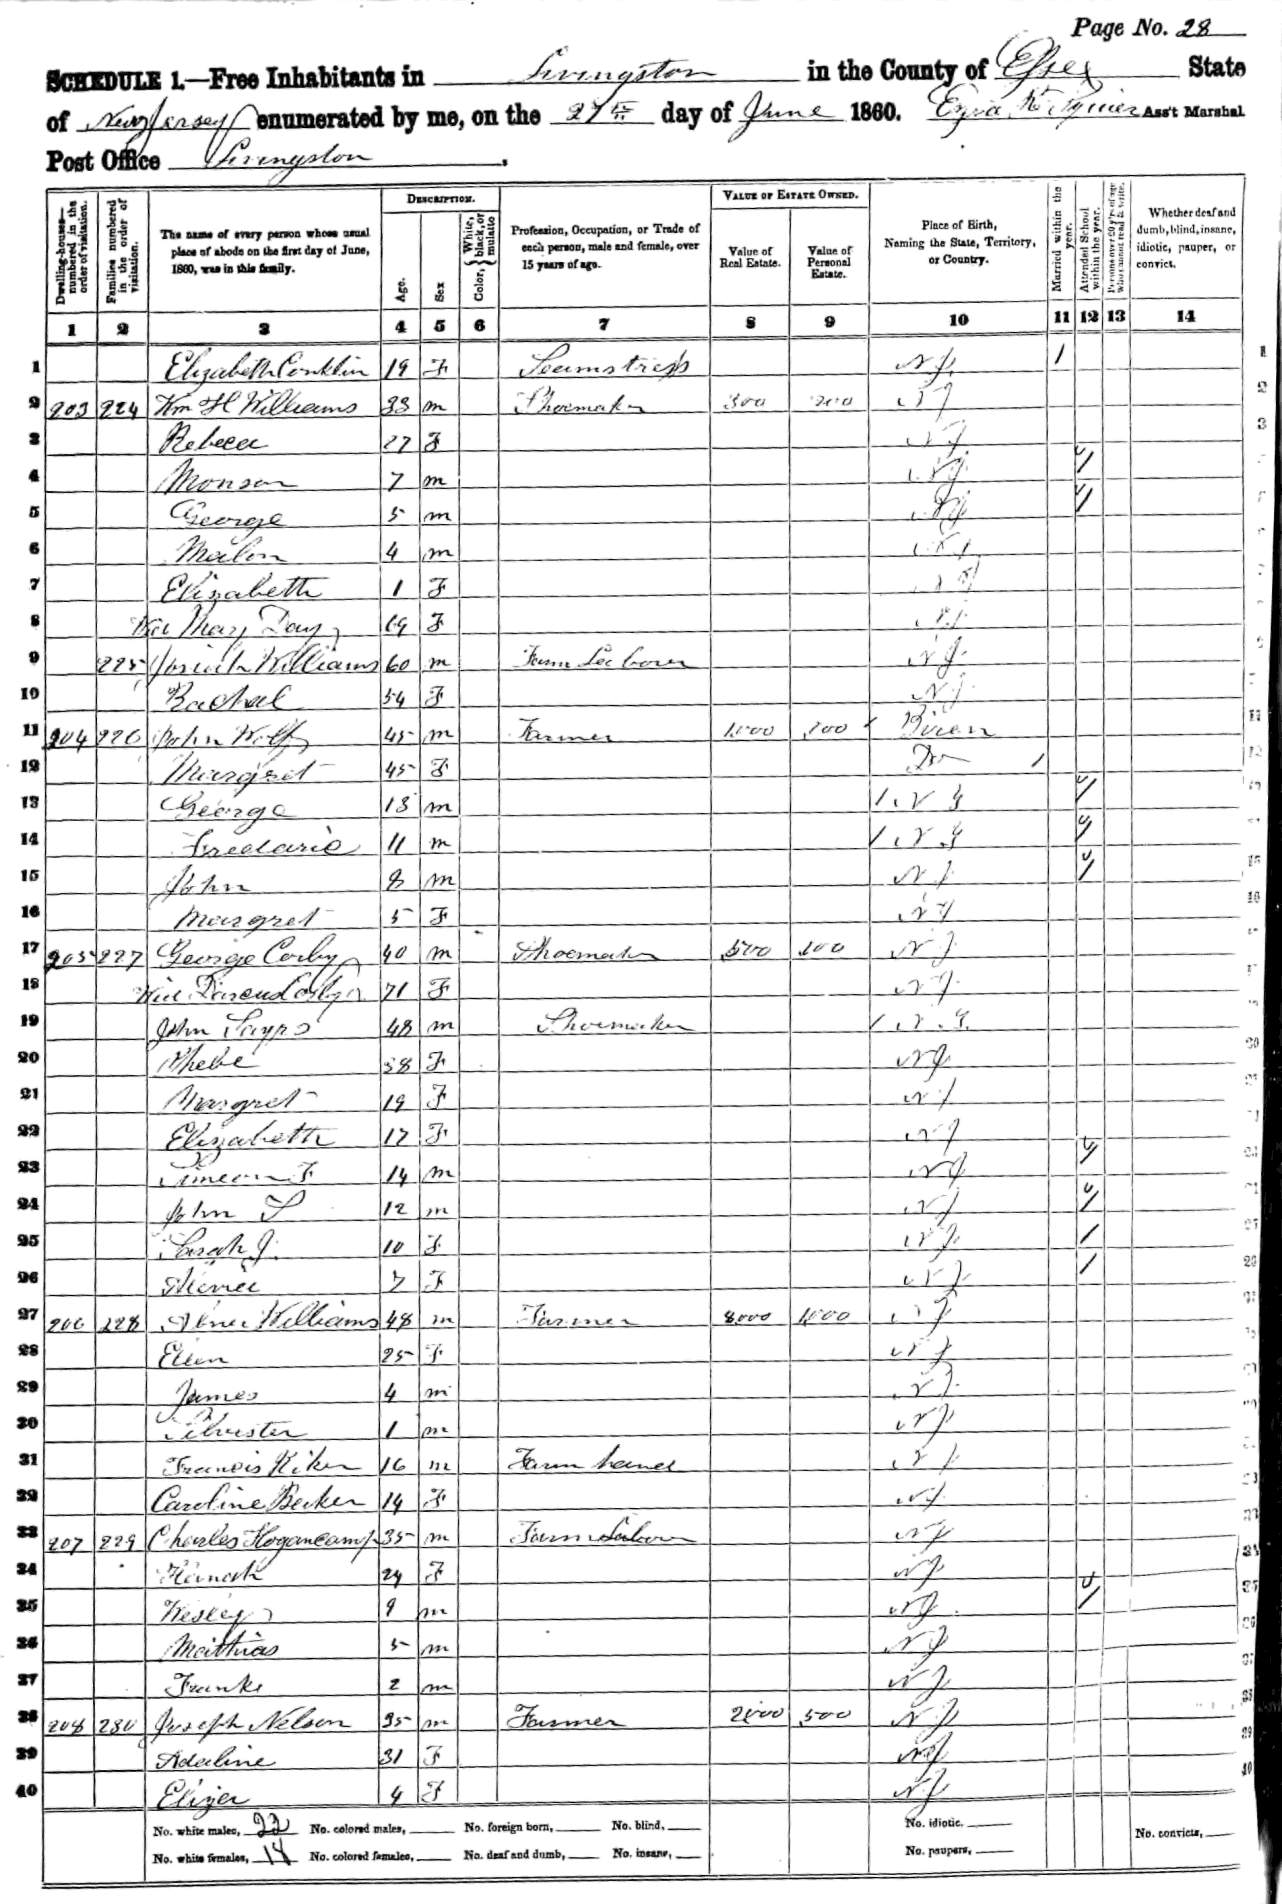 Page No. 28
SCHEDULE 1.—Free Inhabitants in Livingston in the County of Essex State
of New Jersey enumerated by me, on the 27th day of June 1860. Ezra Ass't Marshal
Post Office Livingston.
Dwelling-houses—numbered in the order of visitation.
Families numbered in the order of visitation.
The name of every person whose usual place of abode on the first day of June, 1860, was in this family.
DESCRIPTION.
Age.
Sex
Color, {White, black, or mulatto
Profession, Occupation, or Trade of each person, male and female, over 15 years of age.
VALUE OF ESTATE OWNED.
Value of Real Estate.
Value of Personal Estate.
Place of Birth, Naming the State, Territory, or Country.
Married within the year.
Attended School within the year.
Persons over 20 y'rs of age who cannot read & write.
Whether deaf and dumb, blind, insane, idiotic, pauper, or convict.
1 2 3 4 5 6 7 8 9 10 11 12 13 14
1 Elizabeth Conklin 19 F Seamstress N J. / 1
2 203 224 Wm H Williams 33 m Shoemaker 300 200 N J 2
3 Rebecca 27 F N J 3
4 Monson 7 m N J. /
5 George 5 m N J /
6 Mailon 4 m N J
7 Elizabeth 1 F N J
8 Mary Day 19 F N J
9 225 Josiah Williams 60 m Farm Labourer N J.
10 Rachael 54 F N J.
11 204 226 John Wolf 45 m Farmer 1000 200 11
12 Margret 45 F Do / 12
13 George 13 m / N J /
14 Fredaric 11 m / N J /
15 John 8 m N J / 15
16 Margret 5 F N J 16
17 205 227 George Corby 40 m Shoemaker 500 100 N J
18 Corby 71 F N J.
19 John Sayrs 48 m Shoemaker / N. J.
20 Phebe 38 F N J 20
21 Margret 19 F N J
22 Elizabeth 17 F N J
23 Simeon F 14 m N J /
24 John S 12 m N J /
25 Sarah J. 10 F N J. /
26 7 F N J /
27 206 228 Abner Williams 48 m Farmer 8000 1000 N J
28 Ellen 25 F N J
29 James 4 m N J.
30 Silvester 1 m N J
31 Francis Riker 16 m Farm hand N J
32 Caroline Becker 14 F N J
33 207 229 Charles Hogancamp 35 m Farm Labour N J
34 Hanah 29 F N J
35 Wesley 9 m N J. /
36 Matthias 5 m N J
37 Franks 2 m N J
38 208 230 Joseph Nelson 35 m Farmer 2000 500 N J
39 Adaline 31 F N J
40 Elizer 4 F N J 40
No. white males, 22 No. colored males, No. foreign born, No. blind, No. idiotic. No. convicts,
No. white females, 18 No. colored females, No. deaf and dumb, No. insane, No. paupers,